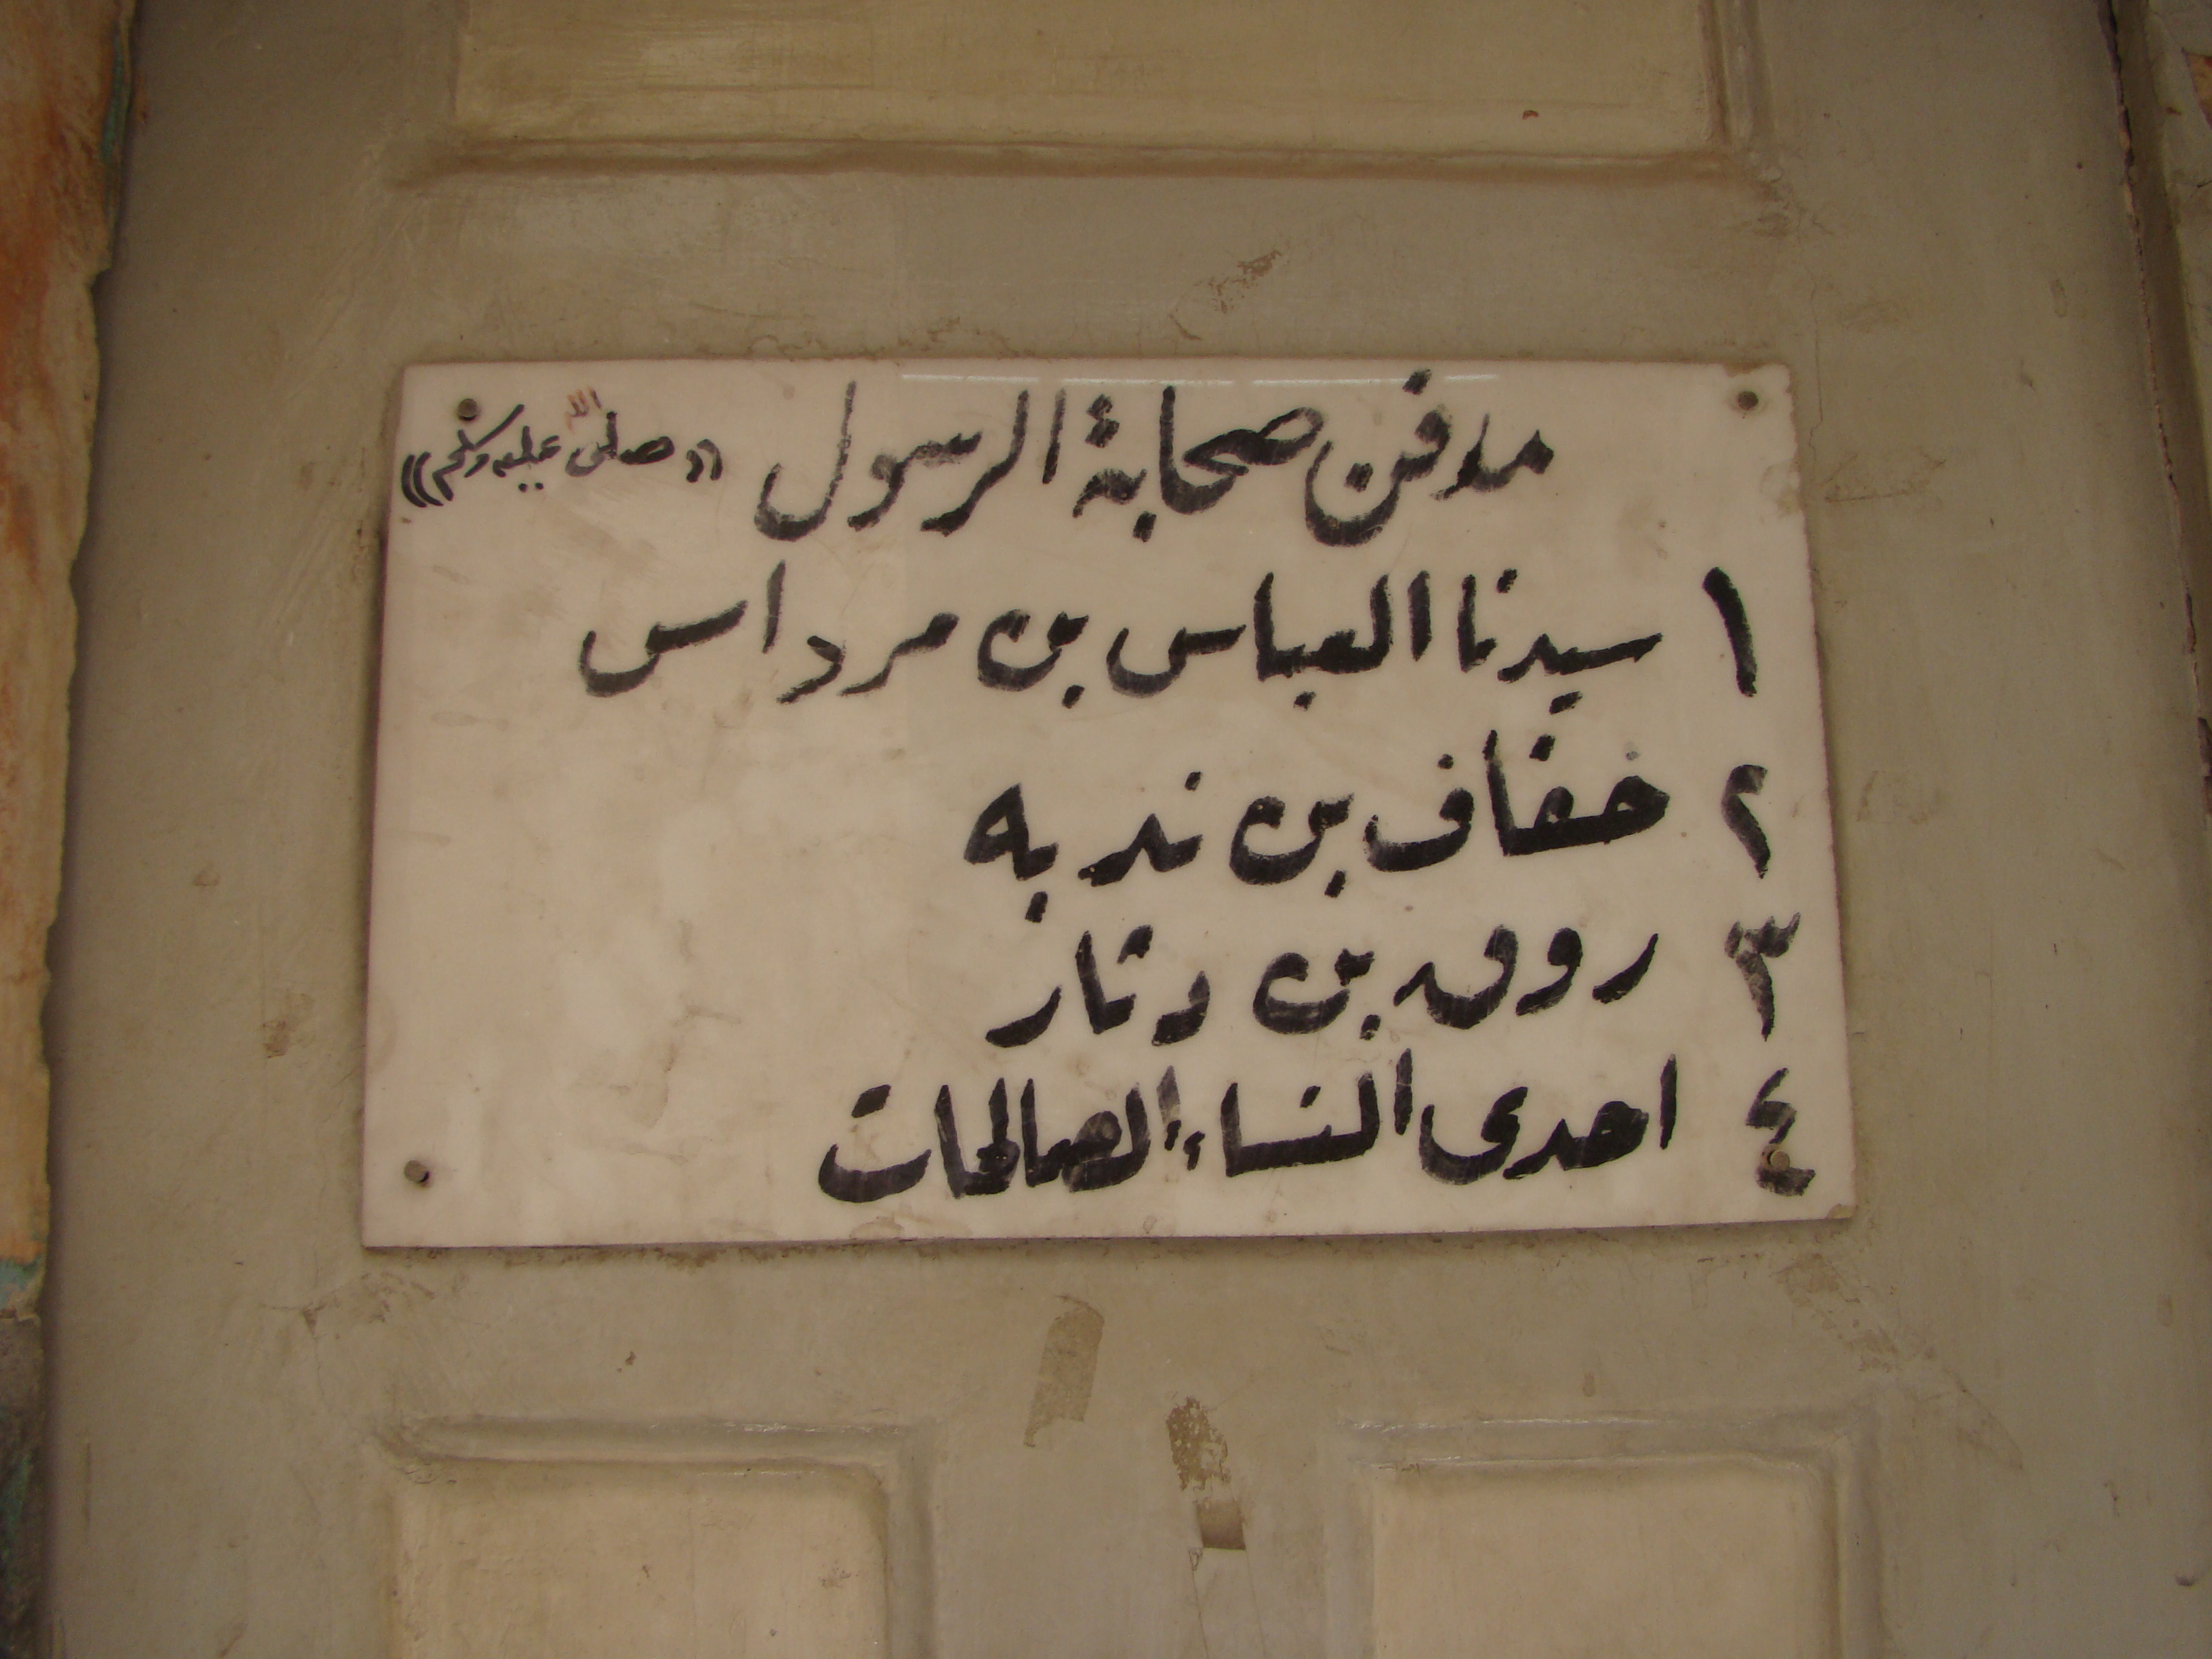 مدفن صحابة الرسول «صلى الله عليه وسلم»
١ سيدنا العباس بن مرداس
٢ خفاف بن ندبه
٣ روق بن دثار
٤ احدى النساء الصالحات